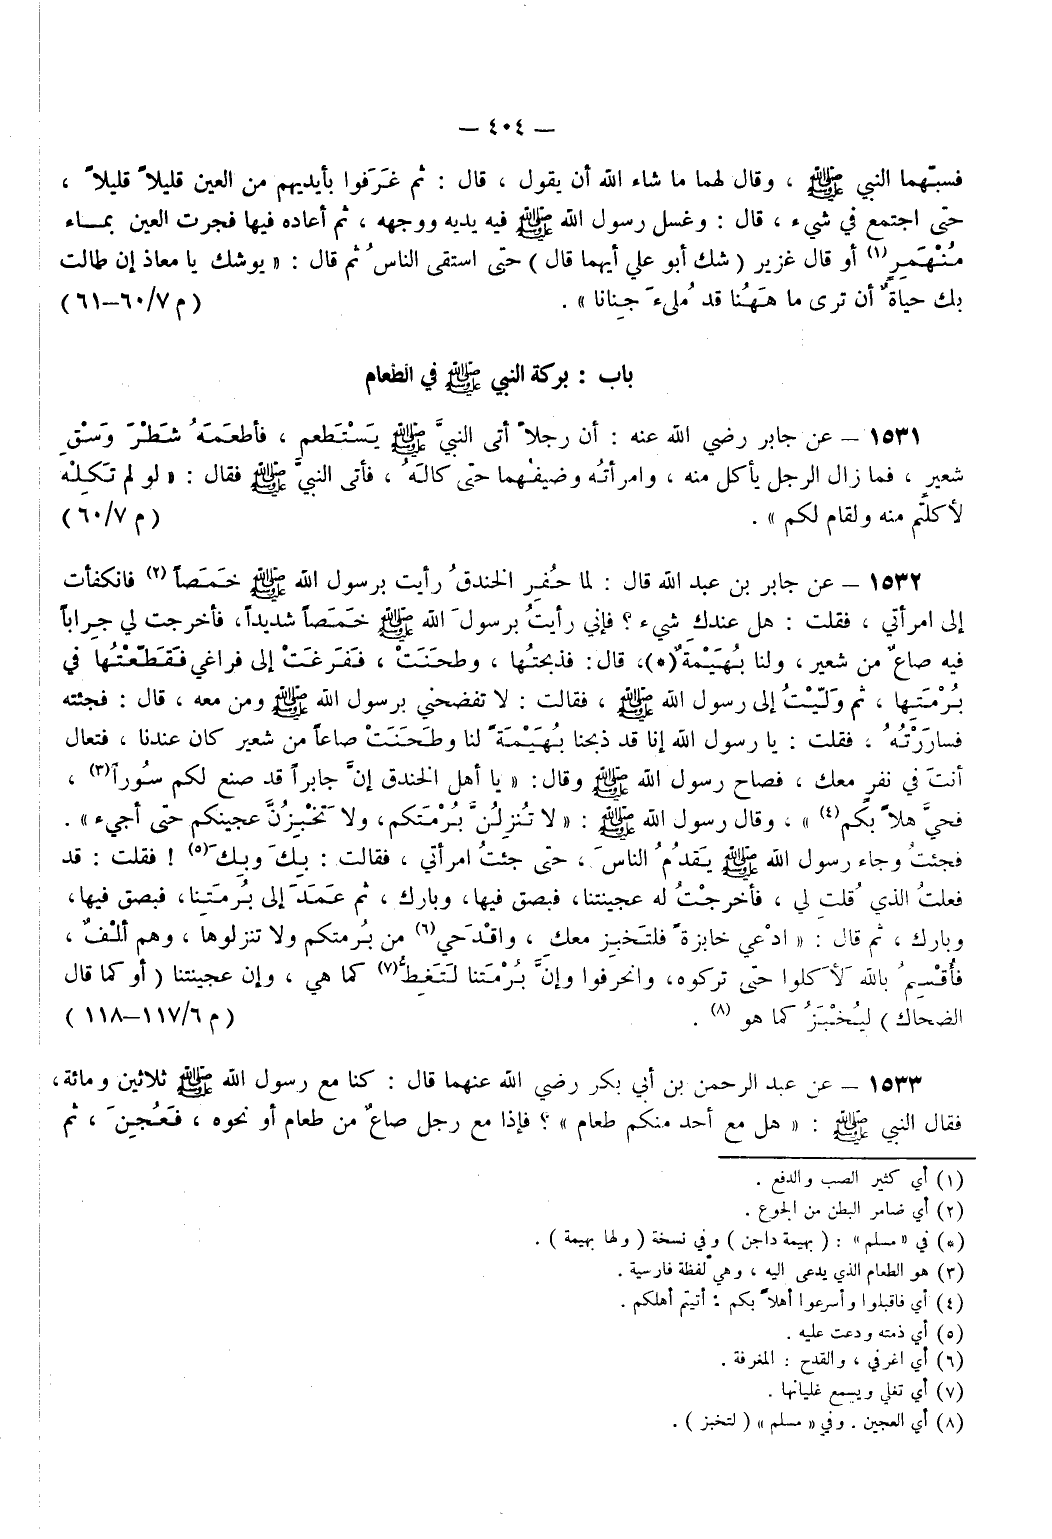 — ٤٠٤ —
فسبّهما النبي ﷺ ، وقال لهما ما شاء الله أن يقول ، قال : ثم غَرَفوا بأيديهم من العين قليلاً قليلاً ،
حتى اجتمع في شيء ، قال : وغسل رسول الله ﷺ فيه يديه ووجهه ، ثم أعاده فيها فجرت العين بمــاء
مُنْهَمِرٍ(١) أو قال غزير ( شك أبو علي أيهما قال ) حتى استقى الناسُ ثم قال : « يوشك يا معاذ إن طالت
بك حياةٌ أن ترى ما هَهُنا قد مُلىءَ جِنانا » . ( م ٦٠/٧–٦١ )
باب : بركة النبي ﷺ في الطعام
١٥٣١ – عن جابر رضي الله عنه : أن رجلاً أتى النبيَّ ﷺ يَسْتَطعم ، فأطعَمَهُ شَطْرَ وَسْقِ
شعيرٍ ، فما زال الرجل يأكل منه ، وامرأتُه وضيفُهما حتى كالَهُ ، فأتى النبيَّ ﷺ فقال : « لو لم تَكِلْه
لأكلتم منه ولقام لكم » . ( م ٦٠/٧ )
١٥٣٢ – عن جابر بن عبد الله قال : لما حُفِر الخندقُ رأيت برسول الله ﷺ خَمَصاً(٢) فانكفأت
إلى امرأتي ، فقلت : هل عندكِ شيء ؟ فإني رأيتُ برسولَ الله ﷺ خَمَصاً شديداً، فأخرجت لي جِراباً
فيه صاعٌ من شعير ، ولنا بُهَيْمةٌ(*)، قال: فذبحتُها ، وطحنَتْ ، فَفَرغَتْ إلى فراغي فَقَطّعْتُها في
بُرْمَتِها ، ثم وَلّيْتُ إلى رسول الله ﷺ ، فقالت : لا تفضحني برسول الله ﷺ ومن معه ، قال : فجئته
فسارَرْتُهُ ، فقلت : يا رسول الله إنا قد ذبحنا بُهَيْمَةً لنا وطَحَنَتْ صاعاً من شعير كان عندنا ، فتعال
أنتَ في نفرٍ معك ، فصاح رسول الله ﷺ وقال: « يا أهل الخندق إنَّ جابراً قد صنع لكم سُوراً(٣) ،
فحيَّ هلاً بكم(٤) » ، وقال رسول الله ﷺ : « لا تُنزلُنَّ بُرْمَتكم، ولا تَخْبِزُنَّ عجينكم حتى أجيء » .
فجئتُ وجاء رسول الله ﷺ يَقدُمُ الناسَ ، حتى جئتُ امرأتي ، فقالت : بِكَ وبِكَ(٥) ! فقلت : قد
فعلتُ الذي قُلتِ لي ، فأخرجْتُ له عجينتنا، فبصق فيها، وبارك ، ثم عَمَدَ إلى بُرمَتِنا، فبصق فيها،
وبارك ، ثم قال : « ادْعي خابزةً فلتَخبِز معكِ ، واقْدَحي(٦) من بُرمتكم ولا تنزلوها ، وهم ألْفٌ ،
فأُقْسِمُ بالله لَأكلوا حتى تركوه، وانحرفوا وإنَّ بُرْمَتنا لَتَغِطُّ(٧) كما هي ، وإن عجينتنا ( أو كما قال
الضحاك ) ليُخْبَزُ كما هو (٨) . ( م ١١٧/٦–١١٨ )
١٥٣٣ – عن عبد الرحمن بن أبي بكر رضي الله عنهما قال : كنا مع رسول الله ﷺ ثلاثين ومائة،
فقال النبي ﷺ : « هل مع أحد منكم طعام » ؟ فإذا مع رجل صاعٌ من طعام أو نحوه ، فَعُجِنَ ، ثم
(١) أي كثير الصب والدفع .
(٢) أي ضامر البطن من الجوع .
(*) في « مسلم » : ( بهيمة داجن ) وفي نسخة ( ولها بهيمة ) .
(٣) هو الطعام الذي يدعى اليه ، وهي لفظة فارسية .
(٤) أي فاقبلوا وأسرعوا أهلاً بكم : أتيتم أهلكم .
(٥) أي ذمته ودعت عليه .
(٦) أي اغرفي ، والقدح : المغرفة .
(٧) أي تغلي ويسمع غليانها .
(٨) أي العجين . وفي « مسلم » ( لتخبز ) .